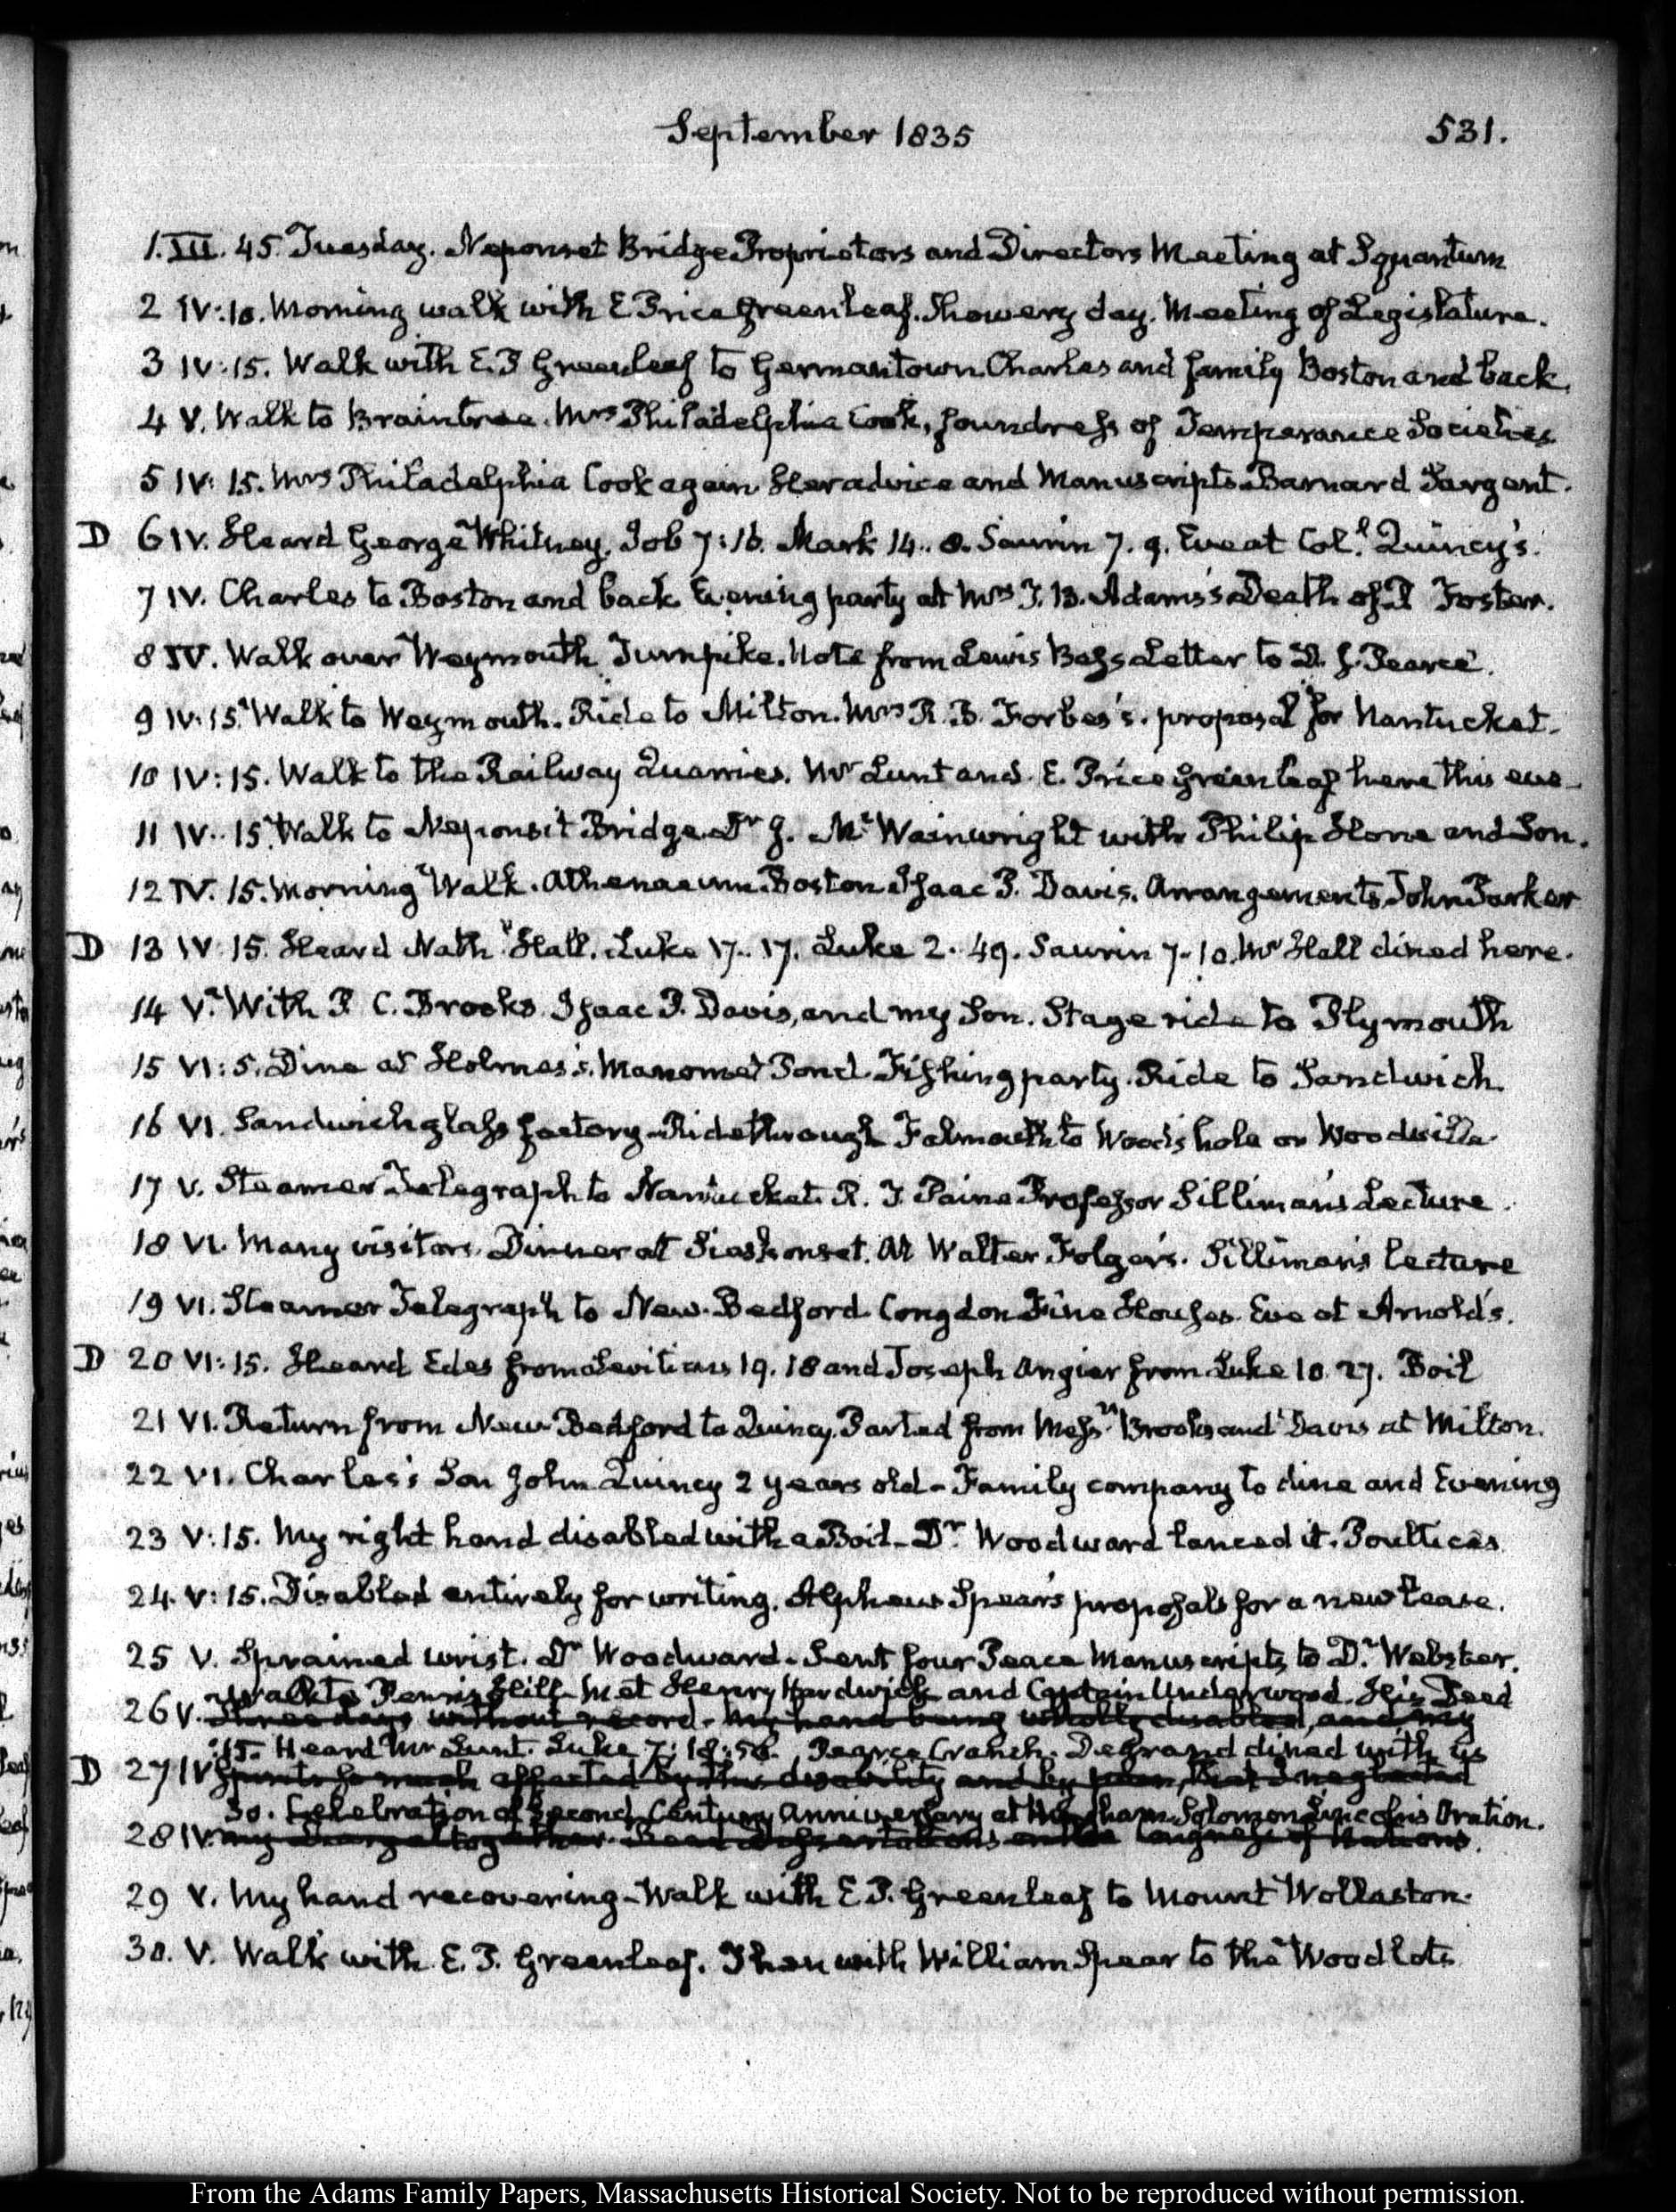 September 1835
531.
1. III. 45. Tuesday. Neponset Bridge Proprietors and Directors Meeting at Squantum
2 IV:10. Morning walk with E Price Greenleaf. Showery day. Meeting of Legislature.
3 IV:15. Walk with E. P Greenleaf to Germantown. Charles and family Boston and back.
4 V. Walk to Braintree. Mrs Philadelphia Cook, foundress of Temperance Societies.
5 IV:15. Mrs Philadelphia Cook again. Her advice and Manuscripts. Barnard Sargent.
D 6 IV. Heard George Whitney. Job 7:16. Mark 14..8. Saurin 7.9. Eve at Col.l Quincy's.
7 IV. Charles to Boston and back. Evening party at Mrs T. B. Adams's. Death of Foster.
8 IV. Walk over Weymouth Turnpike. Note from Lewis Bass. Letter to D. J. Pearce.
9 IV:15. Walk to Weymouth. Ride to Milton. Mrs R. B. Forbes's. proposal for Nantucket.
10 IV:15. Walk to the Railway Quarries. Mr Lunt and E. Price Greenleaf here this eve
11 IV..15. Walk to Neponsit Bridge. Dr J. M. Wainwright with Philip Hone and Son.
12 IV. 15. Morning Walk. Athenaeum Boston. Isaac P. Davis. Arrangements. John Parker
D 13 IV 15. Heard Nath Hall. Luke 17..17. Luke 2..49. Saurin 7-10. Mr Hall dined here.
14 V. With P C. Brooks Isaac P. Davis, and my Son. Stage ride to Plymouth
15 VI:5. Dine at Holmes's. Manomet Pond. Fishing party. Ride to Sandwich.
16 VI. Sandwich glass factory. Ride through Falmouth to Wood's hole or Woodville
17 V. Steamer Telegraph to Nantucket. R. T. Paine Professor Silliman's Lecture.
18 VI. Many visitors. Dinner at Siaskonset. At Walter Folger's. Silliman's lecture
19 VI. Steamer Telegraph to New-Bedford. Congdon Fine Houses. Eve at Arnold's.
D 20 VI:15. Heard Edes from Leviticus 19.18 and Joseph Angier from Luke 10.27. Boil
21 VI. Return from New-Bedford to Quincy. Parted from Messrs Brooks and Davis at Milton.
22 VI. Charles's Son John Quincy 2 years old - Family company to dine and Evening
23 V:15. My right hand disabled with a Boil - Dr Woodward lanced it. Poultices
24. V:15. Disabled entirely for writing. Alpheus Spear's proposals for a new lease.
25 V. Sprained wrist. Dr Woodward - Sent four Peace Manuscripts to D. Webster.
Walk to Penn's Hill. Met Henry Hardwick and Captain Underwood. His Deed
26 V. Three days without record - my hand being wholly disabled, and my
15. Heard Mr Lunt. Luke 7:18:56. Pearce Cranch. Degrand dined with us
D 27 IV Spirits so much affected by this disability and by that I neglected
30. Celebration of Second Century Anniversary at Hingham. Solomon Lincoln's Oration.
28 IV. my Diary altogether. Read Dissertations on the language of Nations.
29 V. My hand recovering - Walk with E P. Greenleaf to Mount Wollaston.
30. V. Walk with E. P. Greenleaf. Then with William Spear to the Woodlots
From the Adams Family Papers, Massachusetts Historical Society. Not to be reproduced without permission.